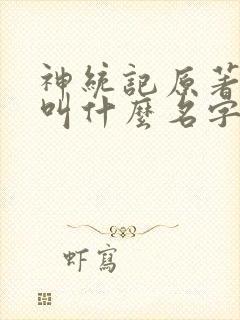 神統記原著
叫什麼名字
虾寫